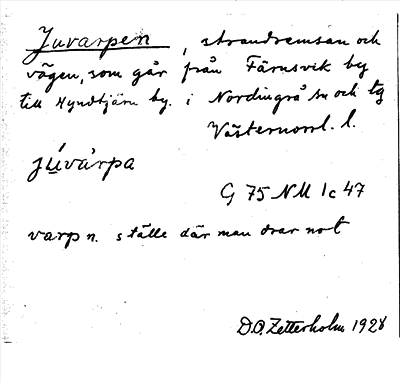 Juvarpen, strandremsan och
vägen, som går från Färnsvik by
till Hyndtjärn by. i Nordingrå sn och tg
Västernorrl. l.
júvàrpa
G 75 NM 1c 47
varp n. ställe där man drar not
D.O. Zetterholm 1928